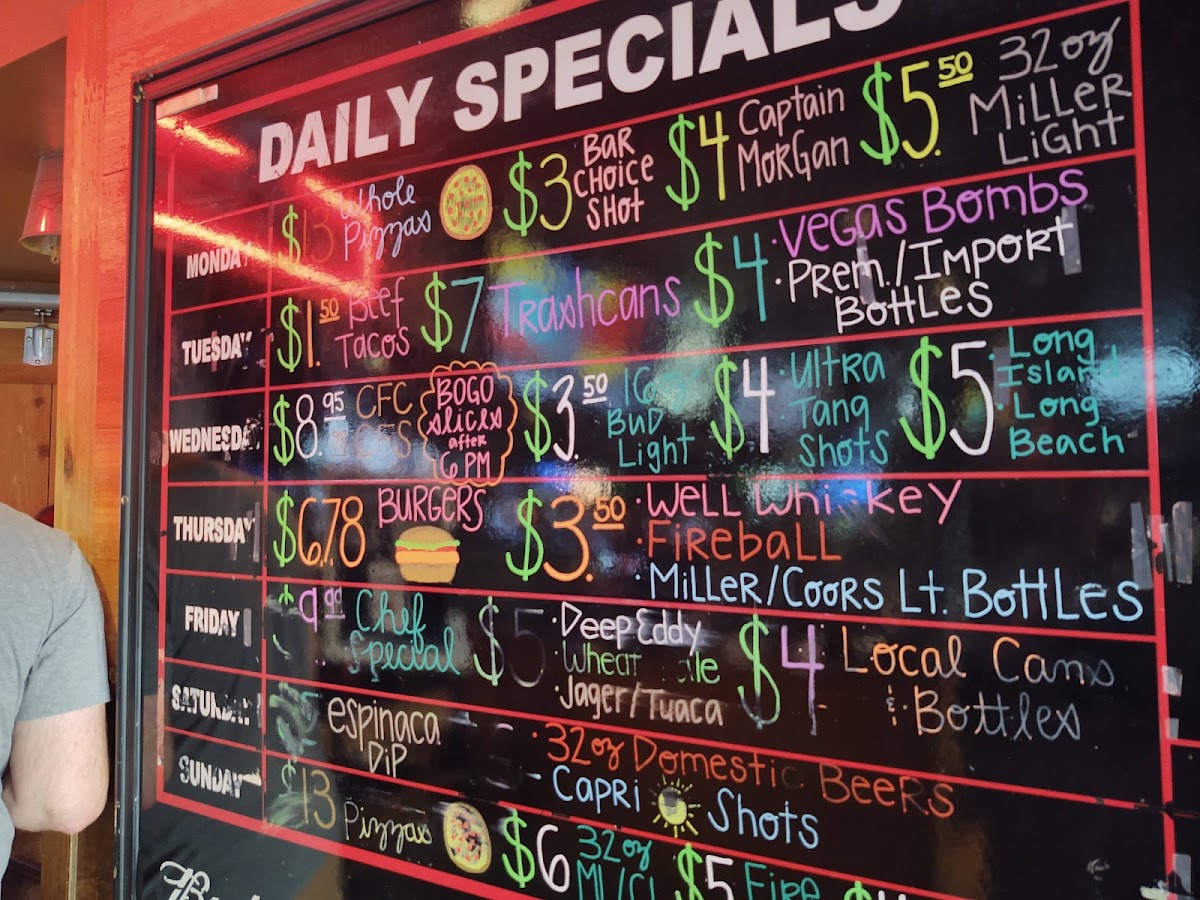 DAILY SPECIALS
MONDAY
$13 Whole Pizzas
$3 BAR CHOICE SHOT
$4 Captain Morgan
$5.50 32oz MILLER LIGHT
TUESDAY
$1.50 Beef Tacos
$7 Trashcans
$4 · Vegas Bombs
· Prem./Import Bottles
WEDNESDAY
$8.95 CFC
BOGO slices after 6 PM
$3.50 16oz Bud Light
$4 · Ultra
· Tang Shots
$5 · Long Island
· Long Beach
THURSDAY
$6.78 BURGERS
$3.50 · Well Whiskey
· Fireball
· Miller/Coors Lt. Bottles
FRIDAY
Chef Special
$5 · Deep Eddy
· Wheat
· Jager/Tuaca
$4 Local Cans & Bottles
SATURDAY
espinaca Dip
· 32oz Domestic Beers
Capri Shots
SUNDAY
$13 Pizzas
$6 32oz
$5 Fire